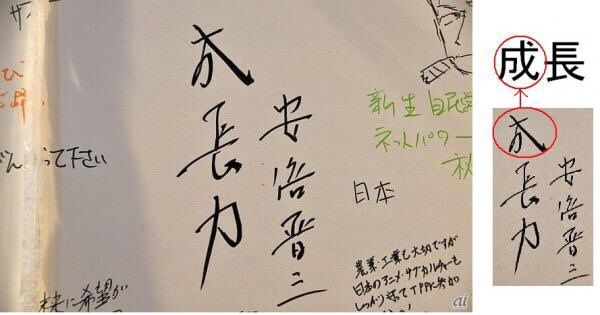 って下さい
成長力
安倍晋三
新生 自民党
ネットパワー
日本
農業、工業も大切ですが
日本のアニメ・サブカルチャーも
しっかり守ってTPPに参加
未来に希望が
ai
成長
成長力
安倍晋三